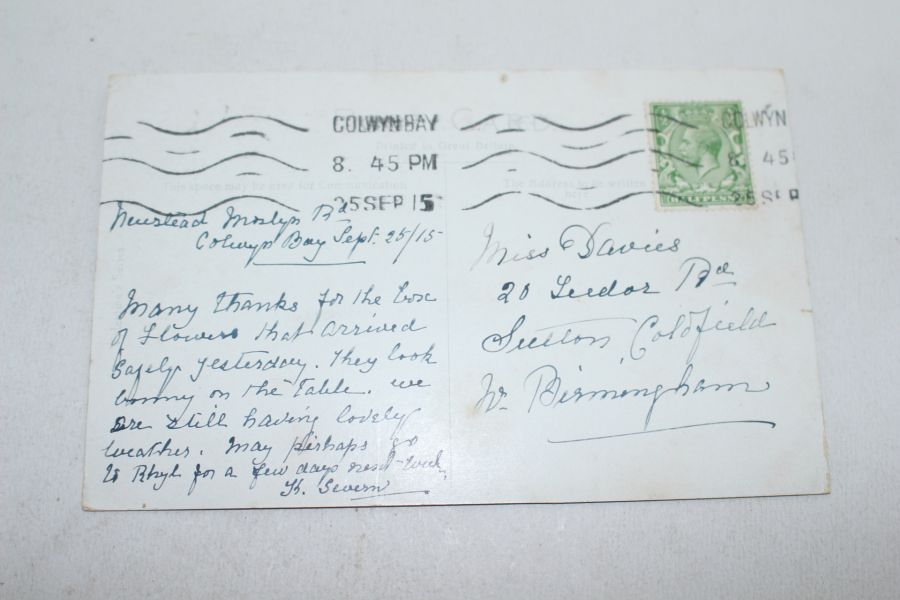 POST CARD.
Printed in Great Britain
COLWYN BAY
8. 45 PM
25 SEP 15
COLWYN
8. 45
25 SEP
This space may be used for Communication
The Address to be written here
HALFPENNY
Newstead Mostyn Rd
Colwyn Bay Sept. 25/15
Many thanks for the box
of flowers that arrived
safely yesterday. They look
bonny on the Table. we
are still having lovely
weather. May perhaps go
to Rhyl for a few days next week.
Severn
Miss Davies
20 Tudor Rd
Sutton Coldfield
Nr Birmingham